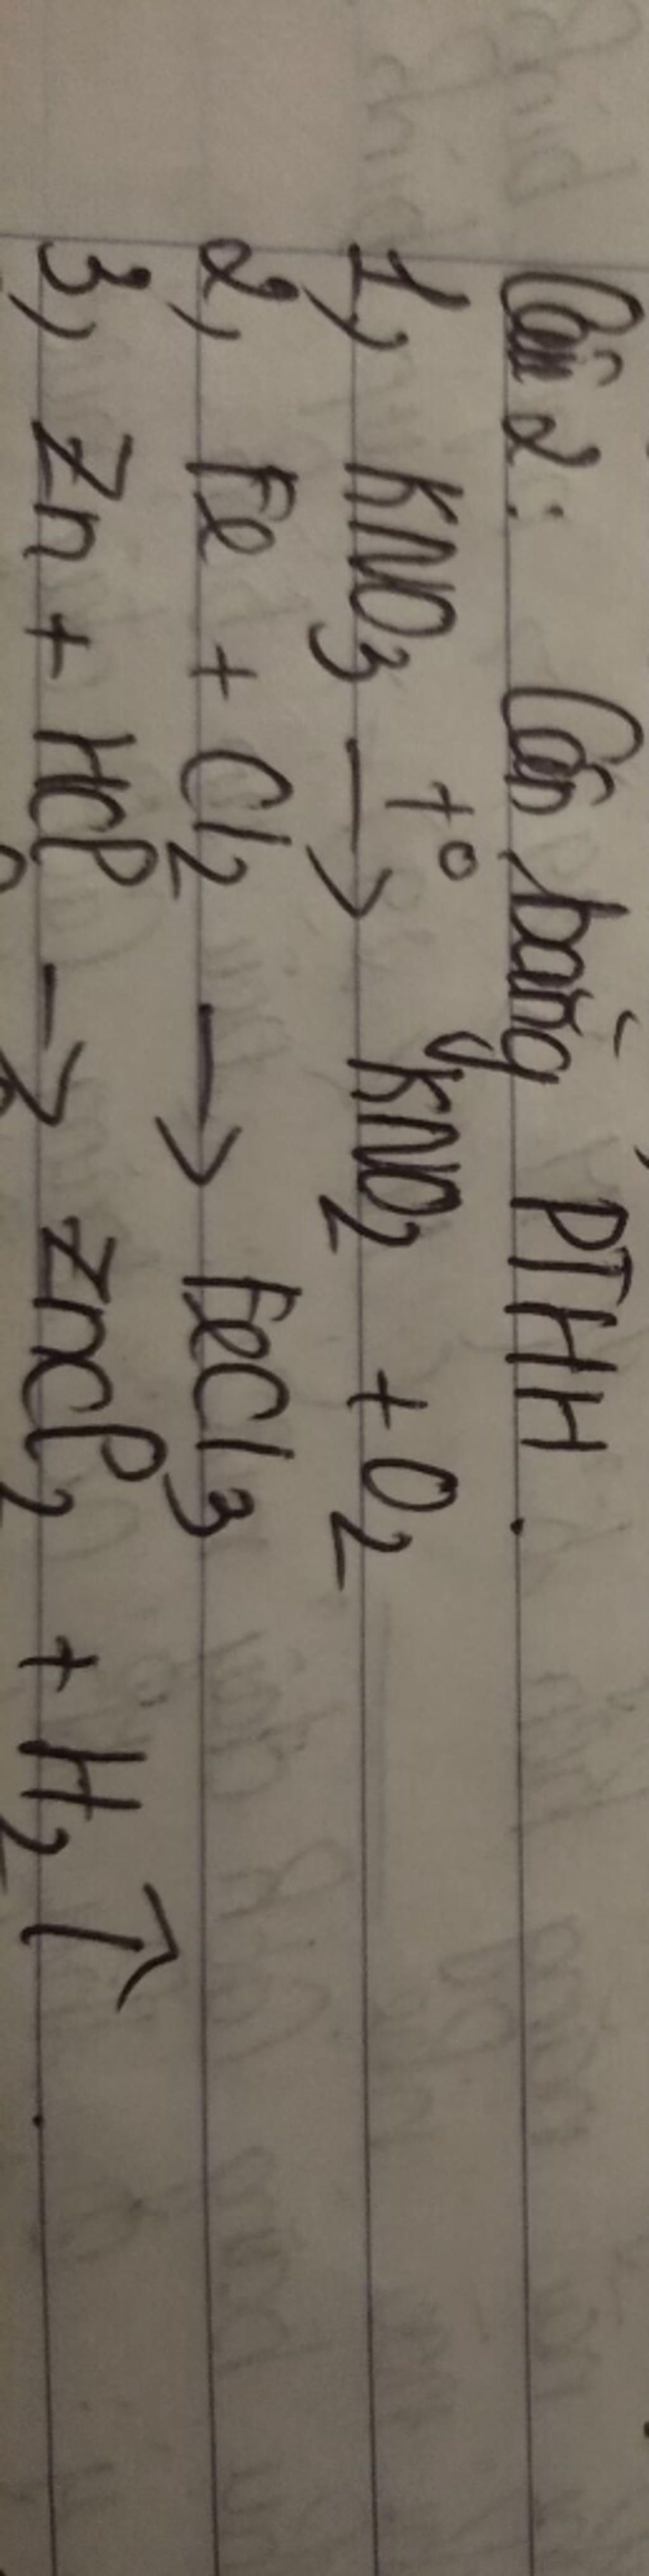 Câu 2: Cân bằng PTHH.
1, KNO₃ —t°→ KNO₂ + O₂
2, Fe + Cl₂ → FeCl₃
3, Zn + HCl → ZnCl₂ + H₂↑.